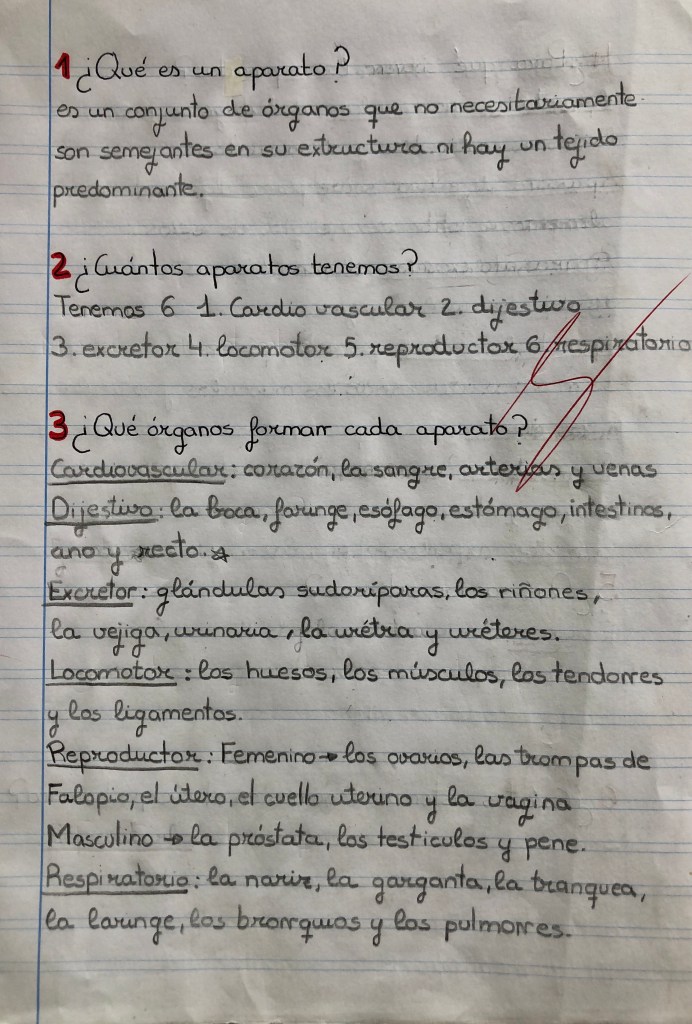 1 ¿Qué es un aparato?
es un conjunto de órganos que no necesitariamente
son semejantes en su extructura ni hay un tejido
predominante.
2 ¿Cuántos aparatos tenemos?
Tenemos 6 1. Cardio vascular 2. dijestivo
3. excretor 4. locomotor 5. reproductor 6. respiratorio
3 ¿Qué órganos forman cada aparato?
Cardiovascular: corazón, la sangre, arterias y venas
Dijestivo: la boca, farunge, esófago, estómago, intestinos,
ano y recto.
Excretor: glándulas sudoríparas, los riñones,
la vejiga, urinaria, la urétra y uréteres.
Locomotor: los huesos, los músculos, los tendones
y los ligamentos.
Reproductor: Femenino → los ovarios, las trompas de
Falopio, el útero, el cuello uterino y la vagina
Masculino → la próstata, los testículos y pene.
Respiratorio: la nariz, la garganta, la tranquea,
la larunge, los bronquios y los pulmones.